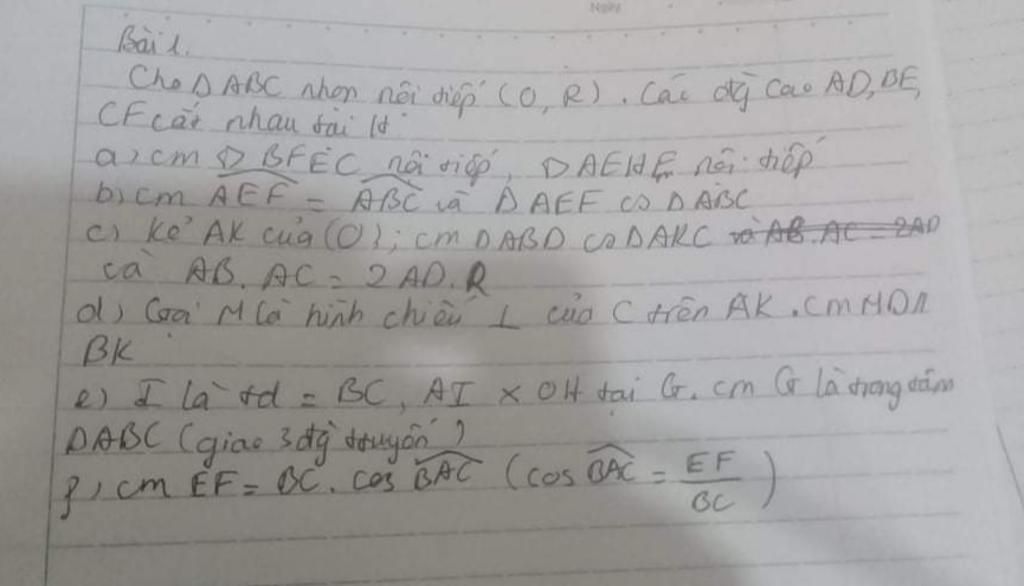 Ngày
Bài 1.
Cho Δ ABC nhọn nội tiếp (O, R). Các đg̀ cao AD, BE,
CF cắt nhau tại H.
a, cm ◊ BFEC nội tiếp, ◊ AEHF nội tiếp
b, cm AEF = ABC và Δ AEF ∽ Δ ABC
c, Kẻ AK của (O); cm Δ ABD ∽ Δ AKC và AB.AC = 2AD
và AB. AC = 2 AD. R
d, Gọi M là hình chiếu ⊥ của C trên AK. cm MD //
BK
e) I là td = BC, AI × OH tại G. cm G là trọng tâm
Δ ABC (giao 3 đg̀ tuyến)
f, cm EF = BC. cos BAC (cos BAC = EF/BC)